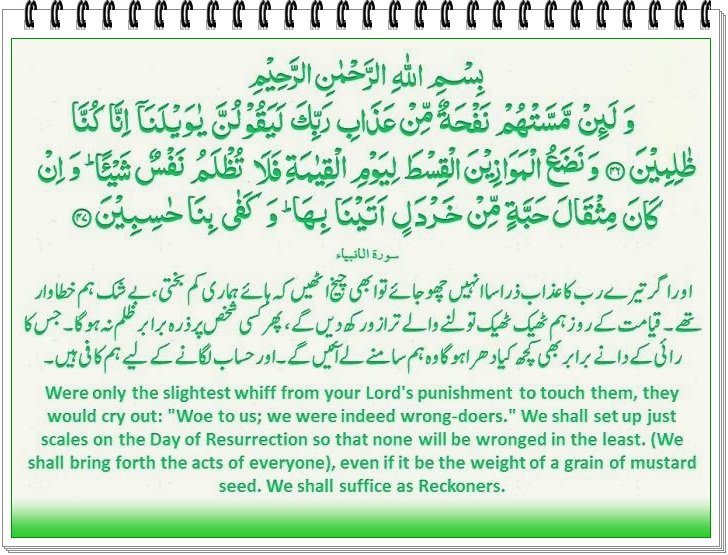 بِسْمِ اللهِ الرَّحْمٰنِ الرَّحِيْمِ
وَ لَئِنْ مَّسَّتْهُمْ نَفْحَةٌ مِّنْ عَذَابِ رَبِّكَ لَيَقُوْلُنَّ يٰوَيْلَنَاۤ اِنَّا كُنَّا
ظٰلِمِيْنَ ﴿۴۶﴾ وَ نَضَعُ الْمَوَازِيْنَ الْقِسْطَ لِيَوْمِ الْقِيٰمَةِ فَلَا تُظْلَمُ نَفْسٌ شَيْئًا ؕ وَ اِنْ
كَانَ مِثْقَالَ حَبَّةٍ مِّنْ خَرْدَلٍ اَتَيْنَا بِهَا ؕ وَ كَفٰى بِنَا حٰسِبِيْنَ ﴿۴۷﴾
سورة الانبياء
اور اگر تیرے رب کا عذاب ذرا سا انہیں چھو جائے تو ابھی چیخ اٹھیں کہ ہائے ہماری کم بختی، بے شک ہم خطاوار
تھے۔ قیامت کے روز ہم ٹھیک ٹھیک تولنے والے ترازو رکھ دیں گے، پھر کسی شخص پر ذرہ برابر ظلم نہ ہوگا۔ جس کا
رائی کے دانے برابر بھی کچھ کیا دھرا ہوگا وہ ہم سامنے لے آئیں گے۔ اور حساب لگانے کے لیے ہم کافی ہیں۔
Were only the slightest whiff from your Lord's punishment to touch them, they
would cry out: "Woe to us; we were indeed wrong-doers." We shall set up just
scales on the Day of Resurrection so that none will be wronged in the least. (We
shall bring forth the acts of everyone), even if it be the weight of a grain of mustard
seed. We shall suffice as Reckoners.